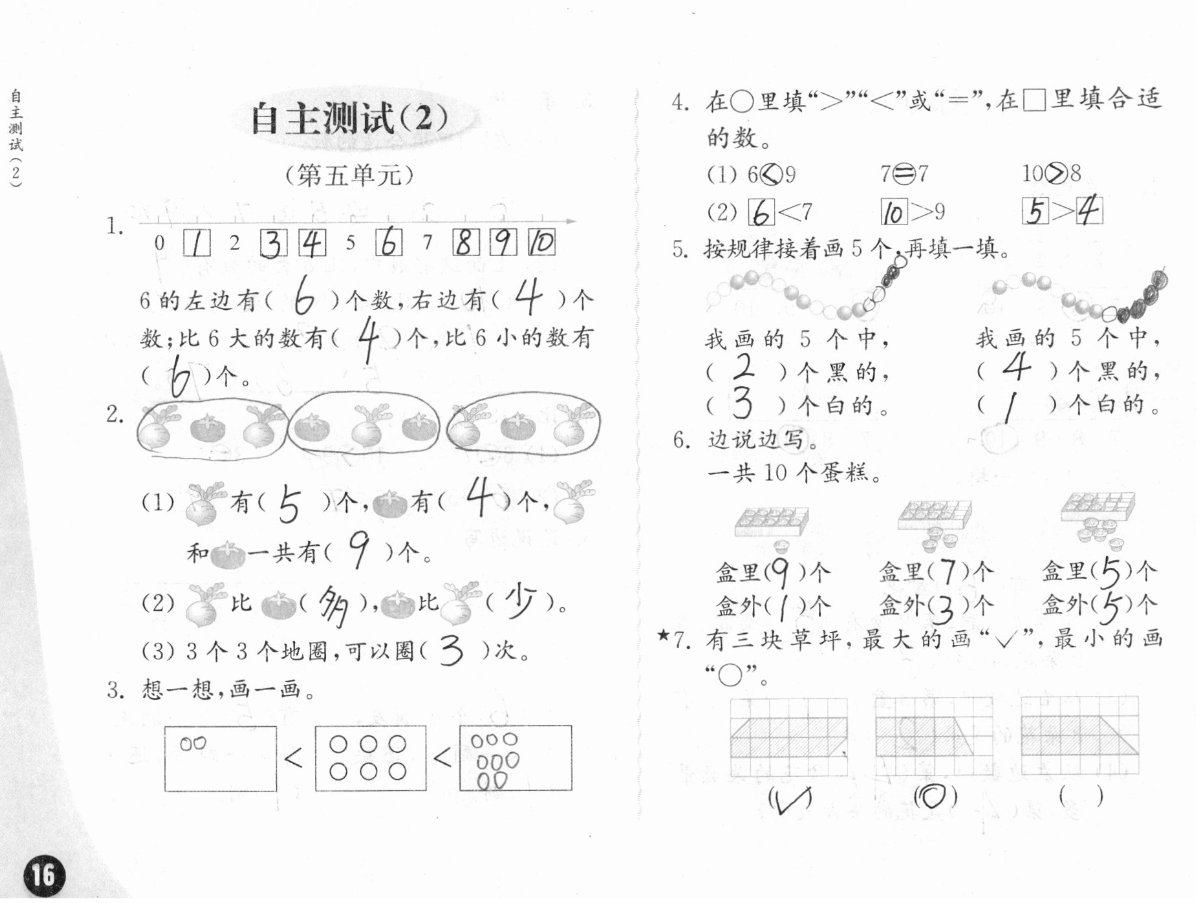 自主测试(2)
自主测试(2)
(第五单元)
1.
0 1 2 3 4 5 6 7 8 9 10
6的左边有( 6 )个数,右边有( 4 )个
数;比6大的数有( 4 )个,比6小的数有
( 6 )个。
2.
(1) 有( 5 )个, 有( 4 )个,
和 一共有( 9 )个。
(2) 比 ( 多 ), 比 ( 少 )。
(3) 3个3个地圈,可以圈( 3 )次。
3. 想一想,画一画。
○○ < ○○○○○○ < ○○○○○○○○
16
4. 在○里填“>”“<”或“=”,在□里填合适
的数。
(1) 6<9 7=7 10>8
(2) 6<7 10>9 5>4
5. 按规律接着画5个,再填一填。
我画的5个中, 我画的5个中,
( 2 )个黑的, ( 4 )个黑的,
( 3 )个白的。 ( 1 )个白的。
6. 边说边写。
一共10个蛋糕。
盒里(9)个 盒里(7)个 盒里(5)个
盒外(1)个 盒外(3)个 盒外(5)个
★7. 有三块草坪,最大的画“✓”,最小的画
“○”。
(✓) (○) ( )